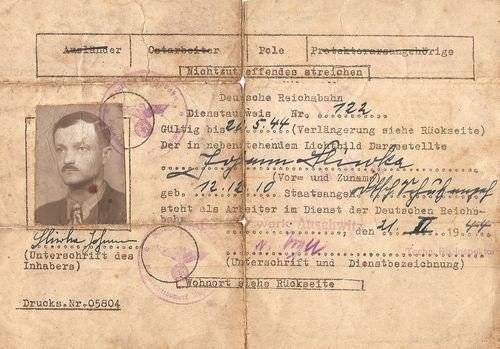 Ausländer Ostarbeiter Pole Protektoratsangehörige
Nichtzutreffendes streichen
Deutsche Reichsbahn
Dienstausweis Nr. 122
Gültig bis 21.5.44 (Verlängerung siehe Rückseite)
Der in nebenstehendem Lichtbild Dargestellte
Johann Sliwka
(Vor= und Zuname)
geb. 12.12.10 Staatsangeh.
steht als Arbeiter im Dienst der Deutschen Reichs=
bahn.
, den 21 19 44
Sliwka Johann
(Unterschrift des
Inhabers)
(Unterschrift und Dienstbezeichnung)
Wohnort siehe Rückseite
Drucks.Nr.05804